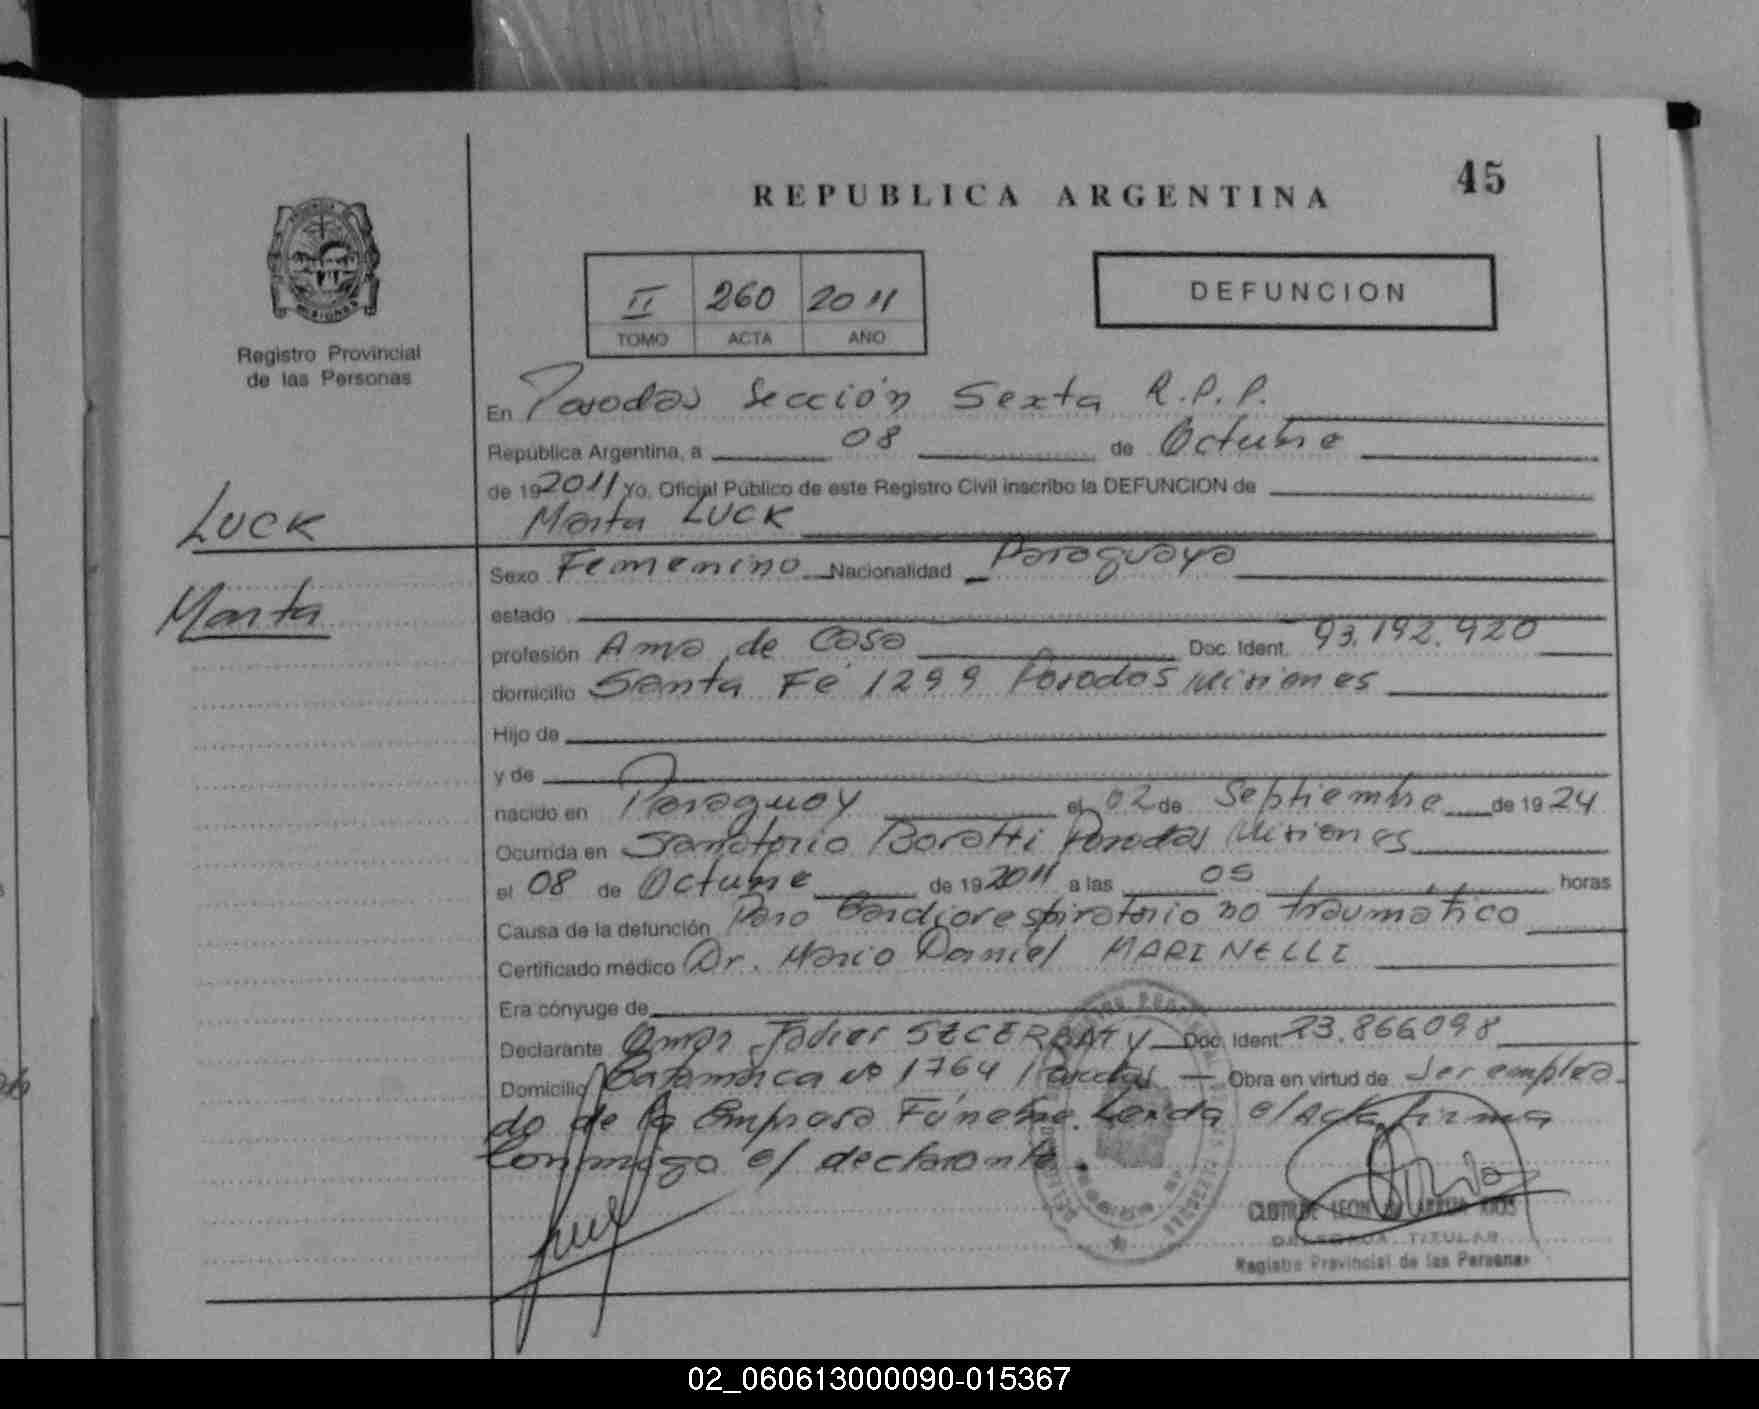 45
REPUBLICA ARGENTINA
II 260 2011
TOMO ACTA AÑO
DEFUNCION
Registro Provincial
de las Personas
En Posadas Sección Sexta R.P.P.
República Argentina, a 08 de Octubre
de 192011 Yo, Oficial Público de este Registro Civil inscribo la DEFUNCION de
LUCK
Marta LUCK
Marta
Sexo Femenino Nacionalidad Paraguaya
estado
profesión Ama de Casa Doc. Ident. 93.192.920
domicilio Santa Fe 1299 Posadas Misiones
Hijo de
y de
nacido en Paraguay el 02 de Septiembre de 1924
Ocurrida en Sanatorio Boratti Posadas Misiones
el 08 de Octubre de 192011 a las 05 horas
Causa de la defunción Paro Cardiorespiratorio no traumático
Certificado médico Dr. Mario Daniel MARINELLI
Era cónyuge de
Declarante Omar Javier SZCERBATY Doc. Ident. 23.866098
Domicilio Catamarca Nº 1764 Posadas Obra en virtud de ser emplea
do de la Empresa Fúnebre. Leída el acta firma
conmigo el declarante.
DELEGADA TITULAR
Registro Provincial de las Personas
02_060613000090-015367